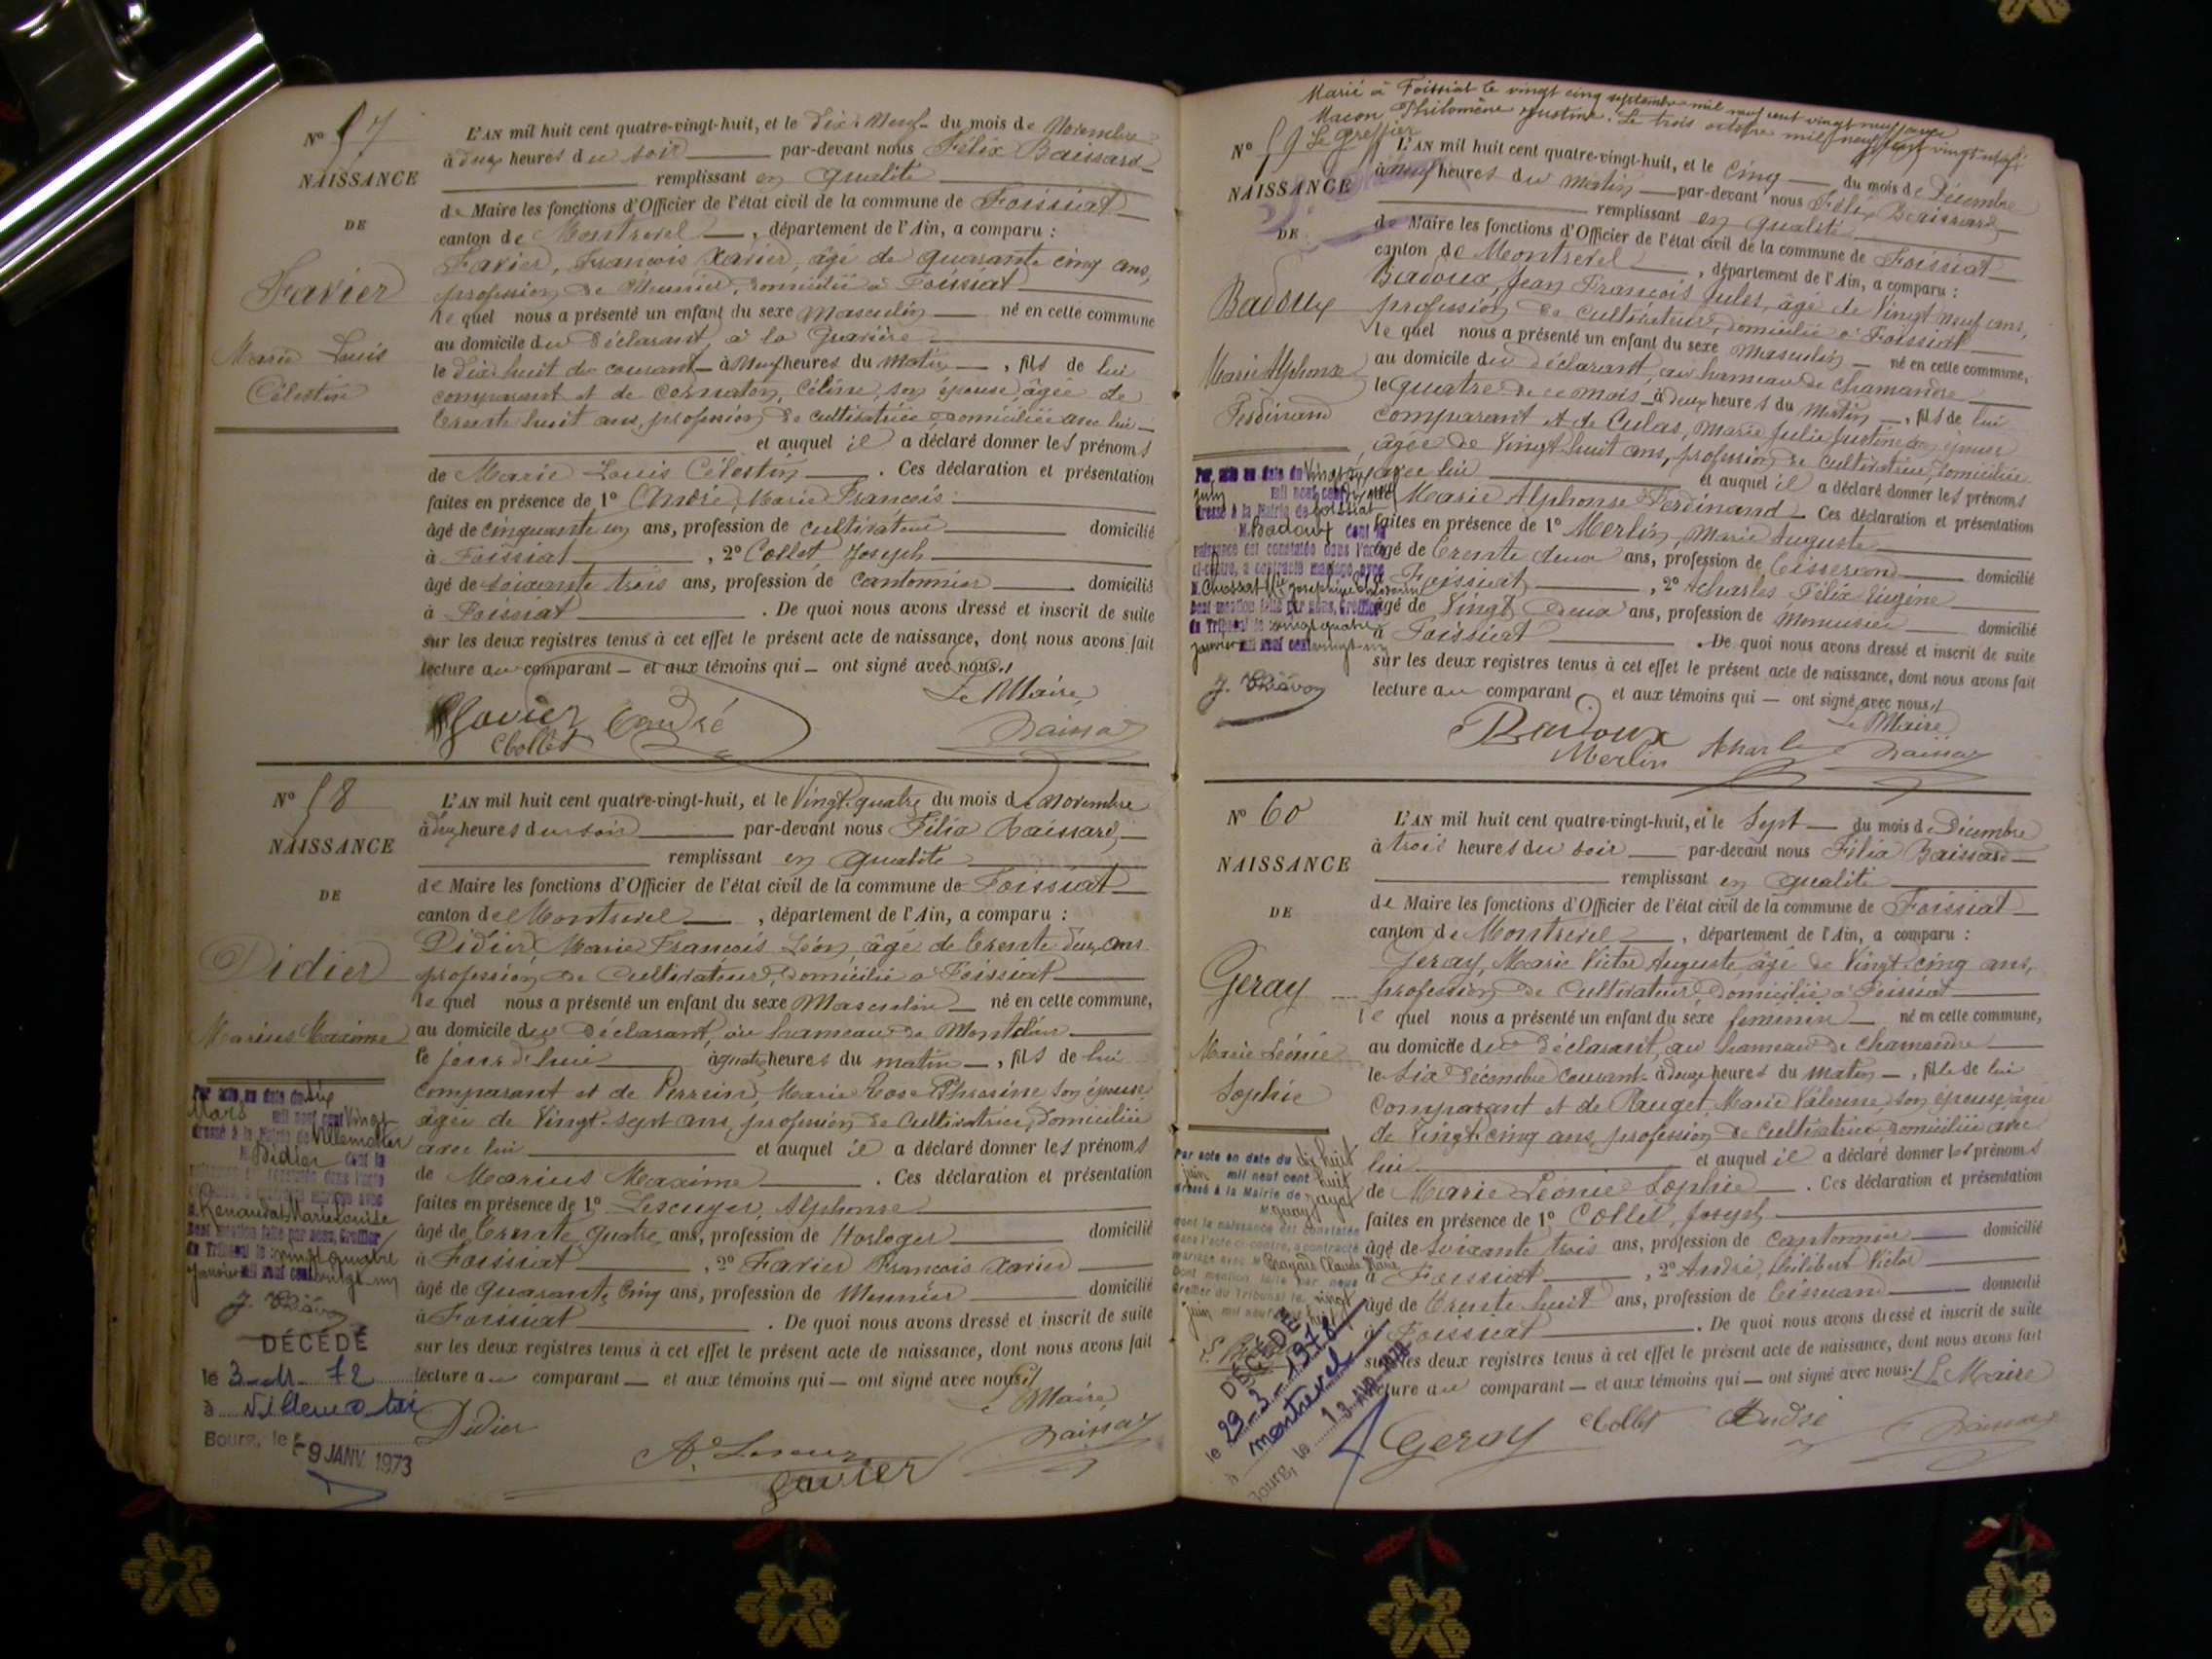 N° 57
NAISSANCE
DE
Favier
Marie Louis
Célestin
L'AN mil huit cent quatre-vingt-huit, et le Dix Neuf du mois de Novembre
à deux heures du soir par-devant nous Félix Baissard
remplissant en qualité
de Maire les fonctions d'Officier de l'état civil de la commune de Foissiat
canton de Montrevel, département de l'Ain, a comparu :
Favier, François Xavier, âgé de quarante cinq ans,
profession de Meunier, domicilié à Foissiat
le quel nous a présenté un enfant du sexe Masculin né en cette commune
au domicile du déclarant, à la
le dix huit du courant à Neuf heures du Matin, fils de lui
comparant et de Célino, son épouse, âgée de
trente huit ans, profession de cultivatrice domiciliée avec lui
et auquel il a déclaré donner les prénoms
de Marie Louis Célestin. Ces déclaration et présentation
faites en présence de 1° André, Marie François
âgé de cinquante un ans, profession de cultivateur domicilié
à Foissiat, 2° Collet, Joseph
âgé de soixante trois ans, profession de cantonnier domicilié
à Foissiat. De quoi nous avons dressé et inscrit de suite
sur les deux registres tenus à cet effet le présent acte de naissance, dont nous avons fait
lecture au comparant et aux témoins qui ont signé avec nous.
Le Maire
Favier André
Collet
N° 58
NAISSANCE
DE
Didier
Marius Maxime
L'AN mil huit cent quatre-vingt-huit, et le Vingt quatre du mois de Novembre
à deux heures du soir par-devant nous Félix Baissard,
remplissant en qualité
de Maire les fonctions d'Officier de l'état civil de la commune de Foissiat
canton de Montrevel, département de l'Ain, a comparu :
Didier, Marie François Léon, âgé de trente deux ans
profession de Cultivateur, domicilié à Foissiat
le quel nous a présenté un enfant du sexe Masculin né en cette commune,
au domicile du déclarant, au hameau de
le jour d'hui à quatre heures du matin, fils de lui
comparant et de Perrin, Marie Rose son épouse
âgée de Vingt-sept ans, profession de Cultivatrice, domiciliée
avec lui et auquel il a déclaré donner les prénoms
de Marius Maxime. Ces déclaration et présentation
faites en présence de 1° Lescuyer, Alphonse
âgé de trente quatre ans, profession de Horloger domicilié
à Foissiat, 2° Favier François Xavier
âgé de quarante cinq ans, profession de Meunier domicilié
à Foissiat. De quoi nous avons dressé et inscrit de suite
sur les deux registres tenus à cet effet le présent acte de naissance, dont nous avons fait
lecture au comparant et aux témoins qui ont signé avec nous.
Le Maire
Didier
Favier
Par acte en date du six
Mars mil neuf cent Vingt
dressé à la Mairie de Villemotier
M. Didier dont la
naissance est constatée dans l'acte
ci-contre, a contracté mariage avec
M. Marie Louise
Dont mention faite par nous, Greffier
du Tribunal le vingt quatre
janvier mil neuf cent vingt un
DÉCÉDÉ
le 3 72
à Villemotier
Bourg, le - 9 JANV. 1973
Marié à Foissiat le vingt cinq septembre mil neuf cent vingt neuf avec
Macon, Philomène Justine. Le trois octobre mil neuf cent vingt neuf.
Le greffier
N° 59
NAISSANCE
DE
Badoux
Marie Alphonse
Ferdinand
L'AN mil huit cent quatre-vingt-huit, et le Cinq du mois de Décembre
à neuf heures du Matin par-devant nous Félix Baissard
remplissant en qualité
de Maire les fonctions d'Officier de l'état civil de la commune de Foissiat
canton de Montrevel, département de l'Ain, a comparu :
Badoux, Jean François Jules, âgé de Vingt neuf ans,
profession de cultivateur, domicilié à Foissiat
le quel nous a présenté un enfant du sexe Masculin né en cette commune,
au domicile du déclarant, au hameau de Chamandre
le quatre de ce mois à deux heures du Matin, fils de lui
comparant et de Culas, Marie Julie Justine son épouse
âgée de Vingt huit ans, profession de Cultivatrice, domiciliée
avec lui et auquel il a déclaré donner les prénoms
Marie Alphonse Ferdinand. Ces déclaration et présentation
faites en présence de 1° Merlin, Marie Auguste
âgé de trente deux ans, profession de Tisserand domicilié
à Foissiat, 2° Félix Eugène
âgé de Vingt Deux ans, profession de Menuisier domicilié
à Foissiat. De quoi nous avons dressé et inscrit de suite
sur les deux registres tenus à cet effet le présent acte de naissance, dont nous avons fait
lecture au comparant et aux témoins qui ont signé avec nous.
Le Maire
Badoux
Merlin
Par acte en date du Vingt
juin mil neuf cent
dressé à la Mairie de Foissiat
M. Badoux dont la
naissance est constatée dans l'acte
ci-contre, a contracté mariage avec
M. Joséphine
Dont mention faite par nous, Greffier
du Tribunal le vingt quatre
janvier mil neuf cent vingt un
N° 60
NAISSANCE
DE
Geray
Marie Léonie
Sophie
L'AN mil huit cent quatre-vingt-huit, et le Sept du mois de Décembre
à trois heures du soir par-devant nous Félix Baissard
remplissant en qualité
de Maire les fonctions d'Officier de l'état civil de la commune de Foissiat
canton de Montrevel, département de l'Ain, a comparu :
Geray, Marie Victor Auguste, âgé de Vingt-cinq ans,
profession de Cultivateur domicilié à Foissiat
le quel nous a présenté un enfant du sexe féminin né en cette commune,
au domicile du déclarant, au hameau de Chamandre
le Six décembre courant à heures du matin, fille de lui
comparant et de Marie son épouse âgée
de Vingt cinq ans, profession de cultivatrice domiciliée avec
lui et auquel il a déclaré donner les prénoms
de Marie Léonie Sophie. Ces déclaration et présentation
faites en présence de 1° Collet, Joseph
âgé de soixante trois ans, profession de cantonnier domicilié
à Foissiat, 2° André, Philibert Victor
âgé de trente huit ans, profession de Tisserand domicilié
à Foissiat. De quoi nous avons dressé et inscrit de suite
sur les deux registres tenus à cet effet le présent acte de naissance, dont nous avons fait
lecture au comparant et aux témoins qui ont signé avec nous. Le Maire
Geray Collet André
Par acte en date du dix huit
juin mil neuf cent huit
dressé à la Mairie de Jayat
M. Geray
dont la naissance est constatée
dans l'acte ci-contre, a contracté
mariage avec M. Claude Marie
Dont mention faite par nous
Greffier du Tribunal le vingt
juin mil neuf cent huit
DÉCÉDÉE
le 29.3.1978
à Montrevel
Bourg, le 13